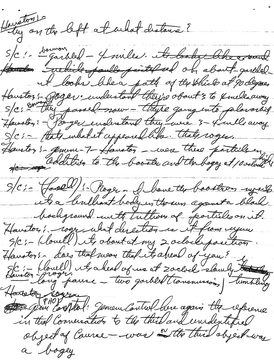 Houston:-
try on the left at what distance?
S/C:- garbled - 4 miles. it looks like
looks like a path of the vehicle at 90 degrees
Houston:- Roger understand they're about 3 to 4 miles away
S/C:- they passed now - they're going into polar orbit
Houston:- Roger understand they were 3 - 4 miles away
S/C:- that's what it appeared like. that's roger.
Houston:- gemini-7 Houston - were these particles in
addition to the booster and the bogey at 10 o'clock
S/C:- (Lovell):- Roger - I have the booster on my side
it's a brilliant body in the sun against a black
background with trillions of particles on it.
Houston:- roger what direction is it from you
S/C:- (Lovell) it's about at my 2 o'clock position.
Houston:- does that mean that it's ahead of you?
S/C:- (Lovell) it's ahead of us at 2 o'clock slowly tumbling
Houston roger
long pause - two garbled transmissions
Gemini Control, Gemini Control here again the reference
in that conversation to the third and unidentified
object of course - was the third object was
a bogey